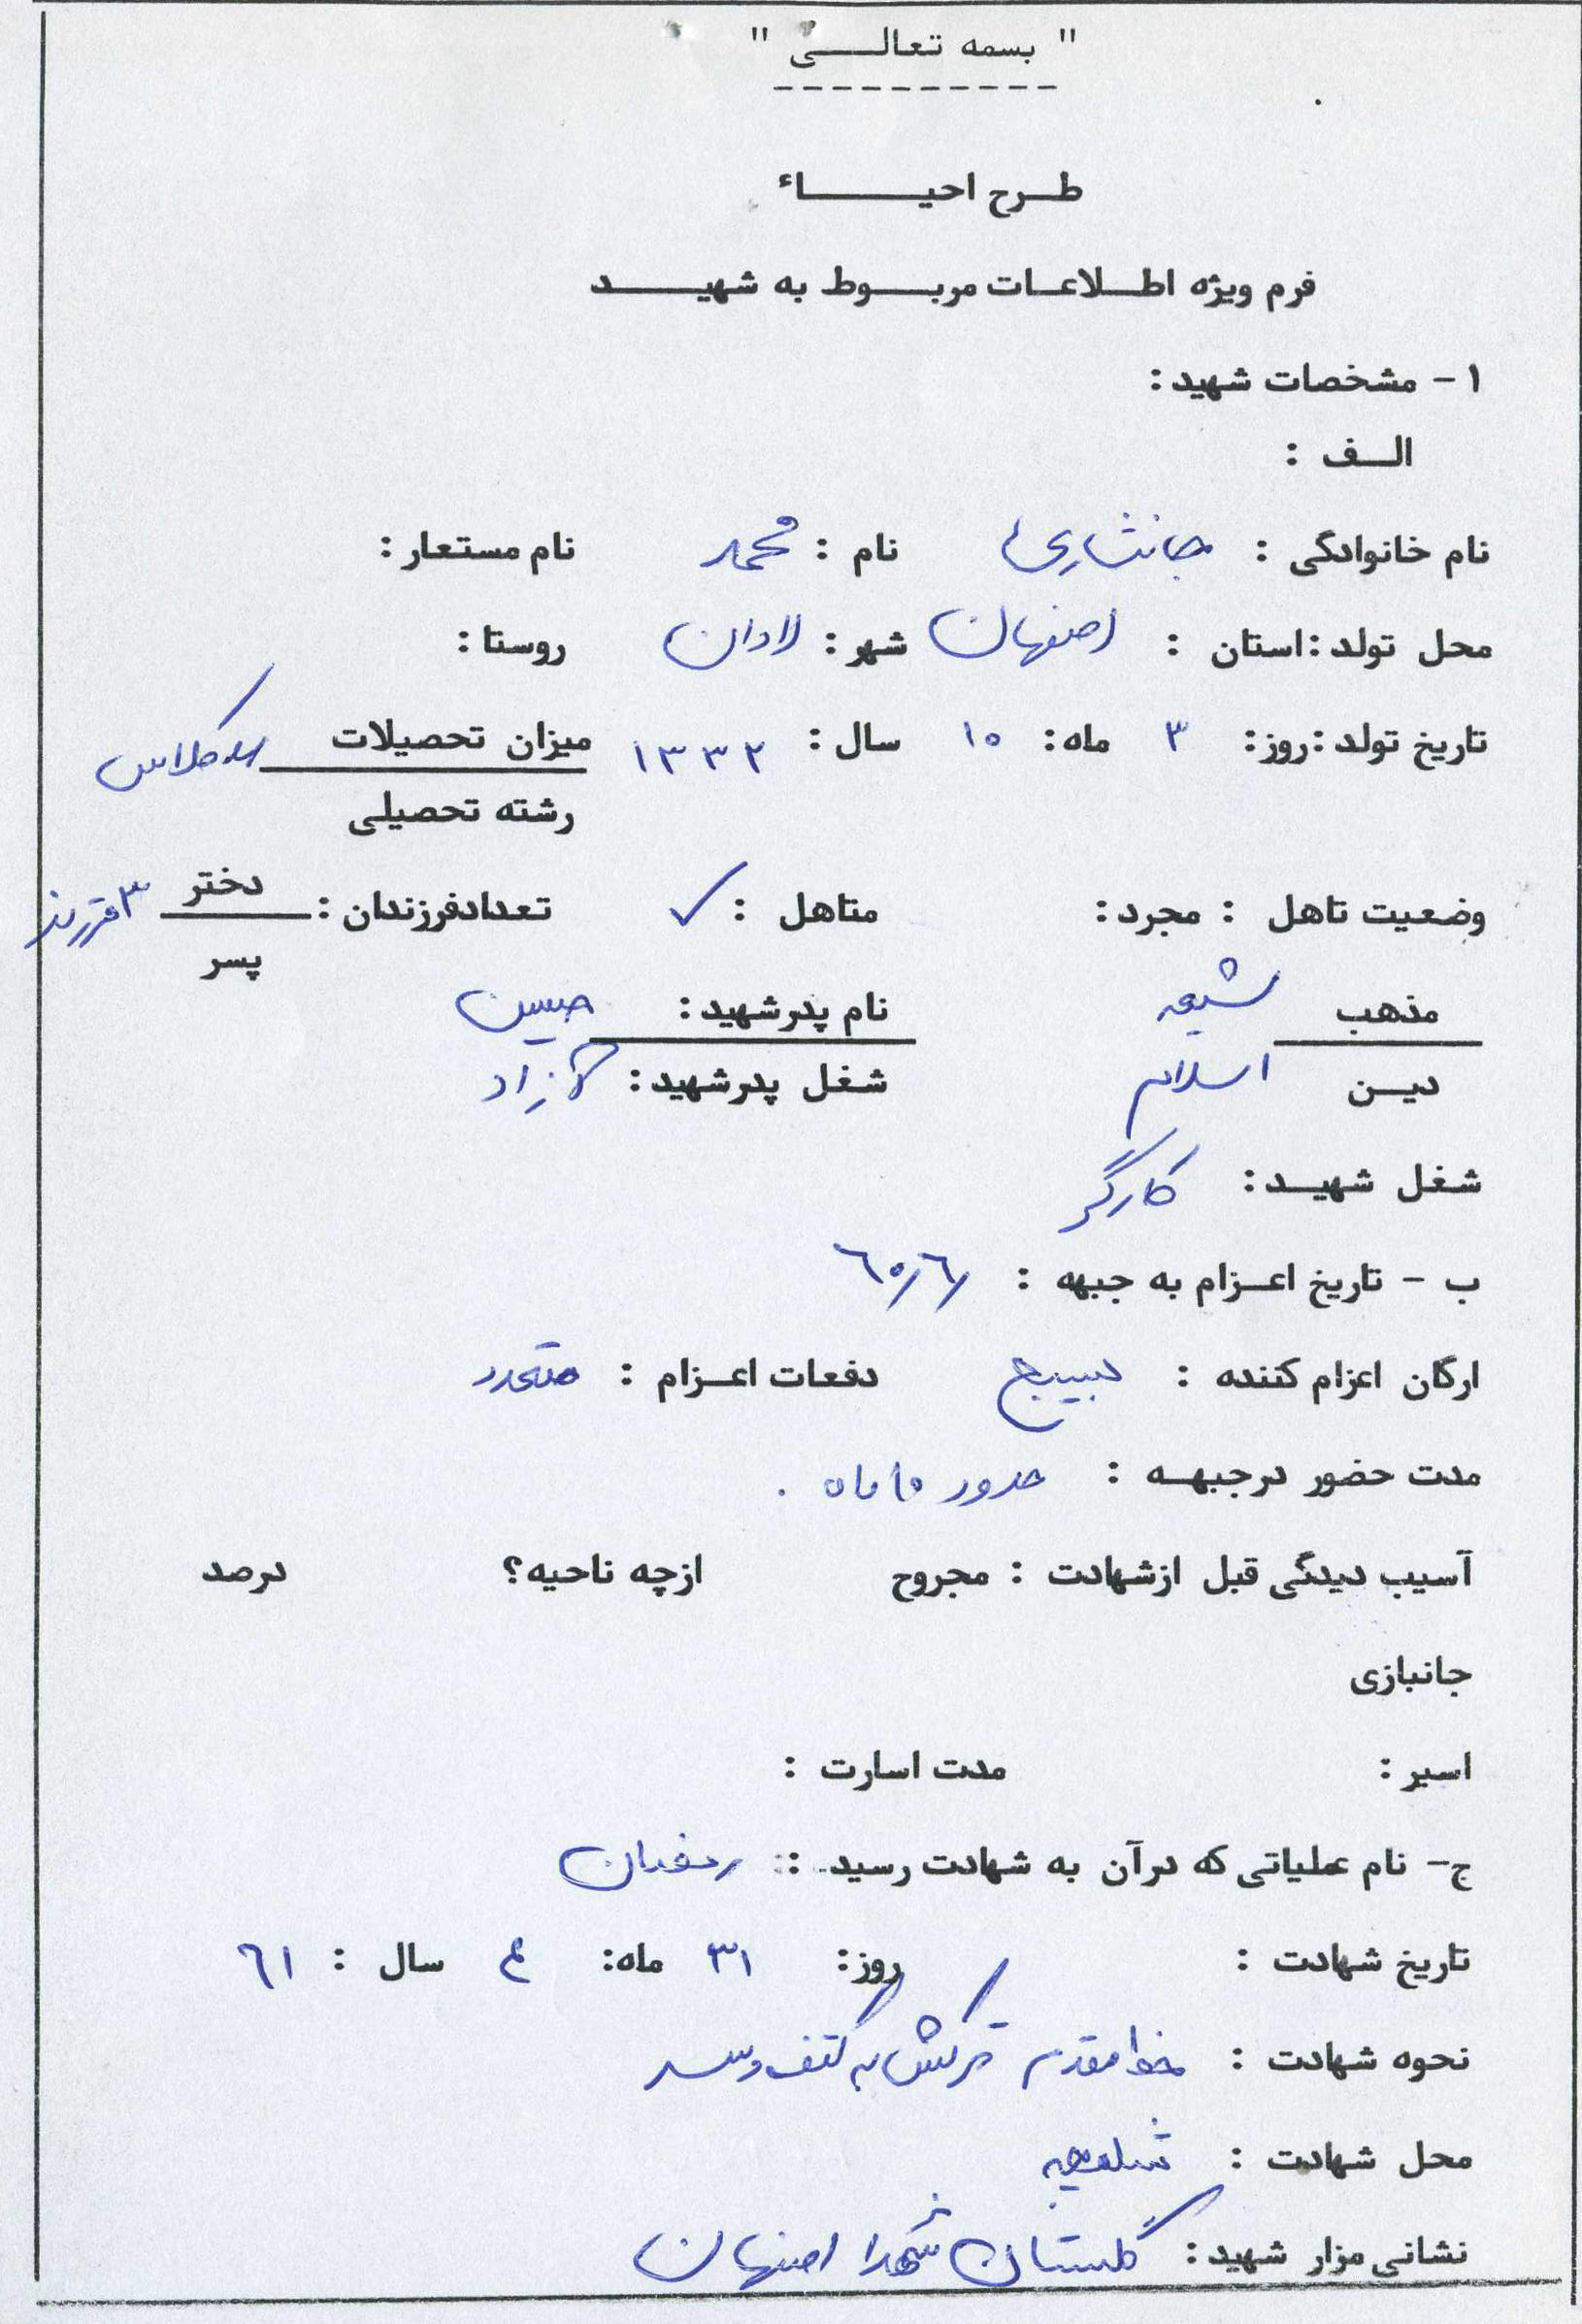 " بسمه تعالی "
طرح احیاء
فرم ویژه اطلاعات مربوط به شهید
۱- مشخصات شهید:
الف :
نام خانوادگی : جانثاری نام : محمد نام مستعار :
محل تولد : استان : اصفهان شهر : لادان روستا :
تاریخ تولد : روز: ۳ ماه: ۱۰ سال : ۱۳۳۲ میزان تحصیلات کلاس
رشته تحصیلی
وضعیت تاهل : مجرد : متاهل : ✓ تعدادفرزندان : دختر ۳ فرزند
پسر
مذهب شیعه نام پدرشهید : حسین
دین اسلام شغل پدرشهید : آزاد
شغل شهید : کارگر
ب - تاریخ اعزام به جبهه : ٦٠/٦/
ارگان اعزام کننده : بسیج دفعات اعزام : متعدد
مدت حضور درجبهه : حدود ۱۰ ماه .
آسیب دیدگی قبل ازشهادت : مجروح ازچه ناحیه؟ درصد
جانبازی
اسیر : مدت اسارت :
ج- نام عملیاتی که درآن به شهادت رسید : رمضان
تاریخ شهادت : روز: ۳۱ ماه: ٤ سال : ٦١
نحوه شهادت : خط مقدم ترکش به کتف و سر
محل شهادت : شلمچه
نشانی مزار شهید : گلستان شهدا اصفهان